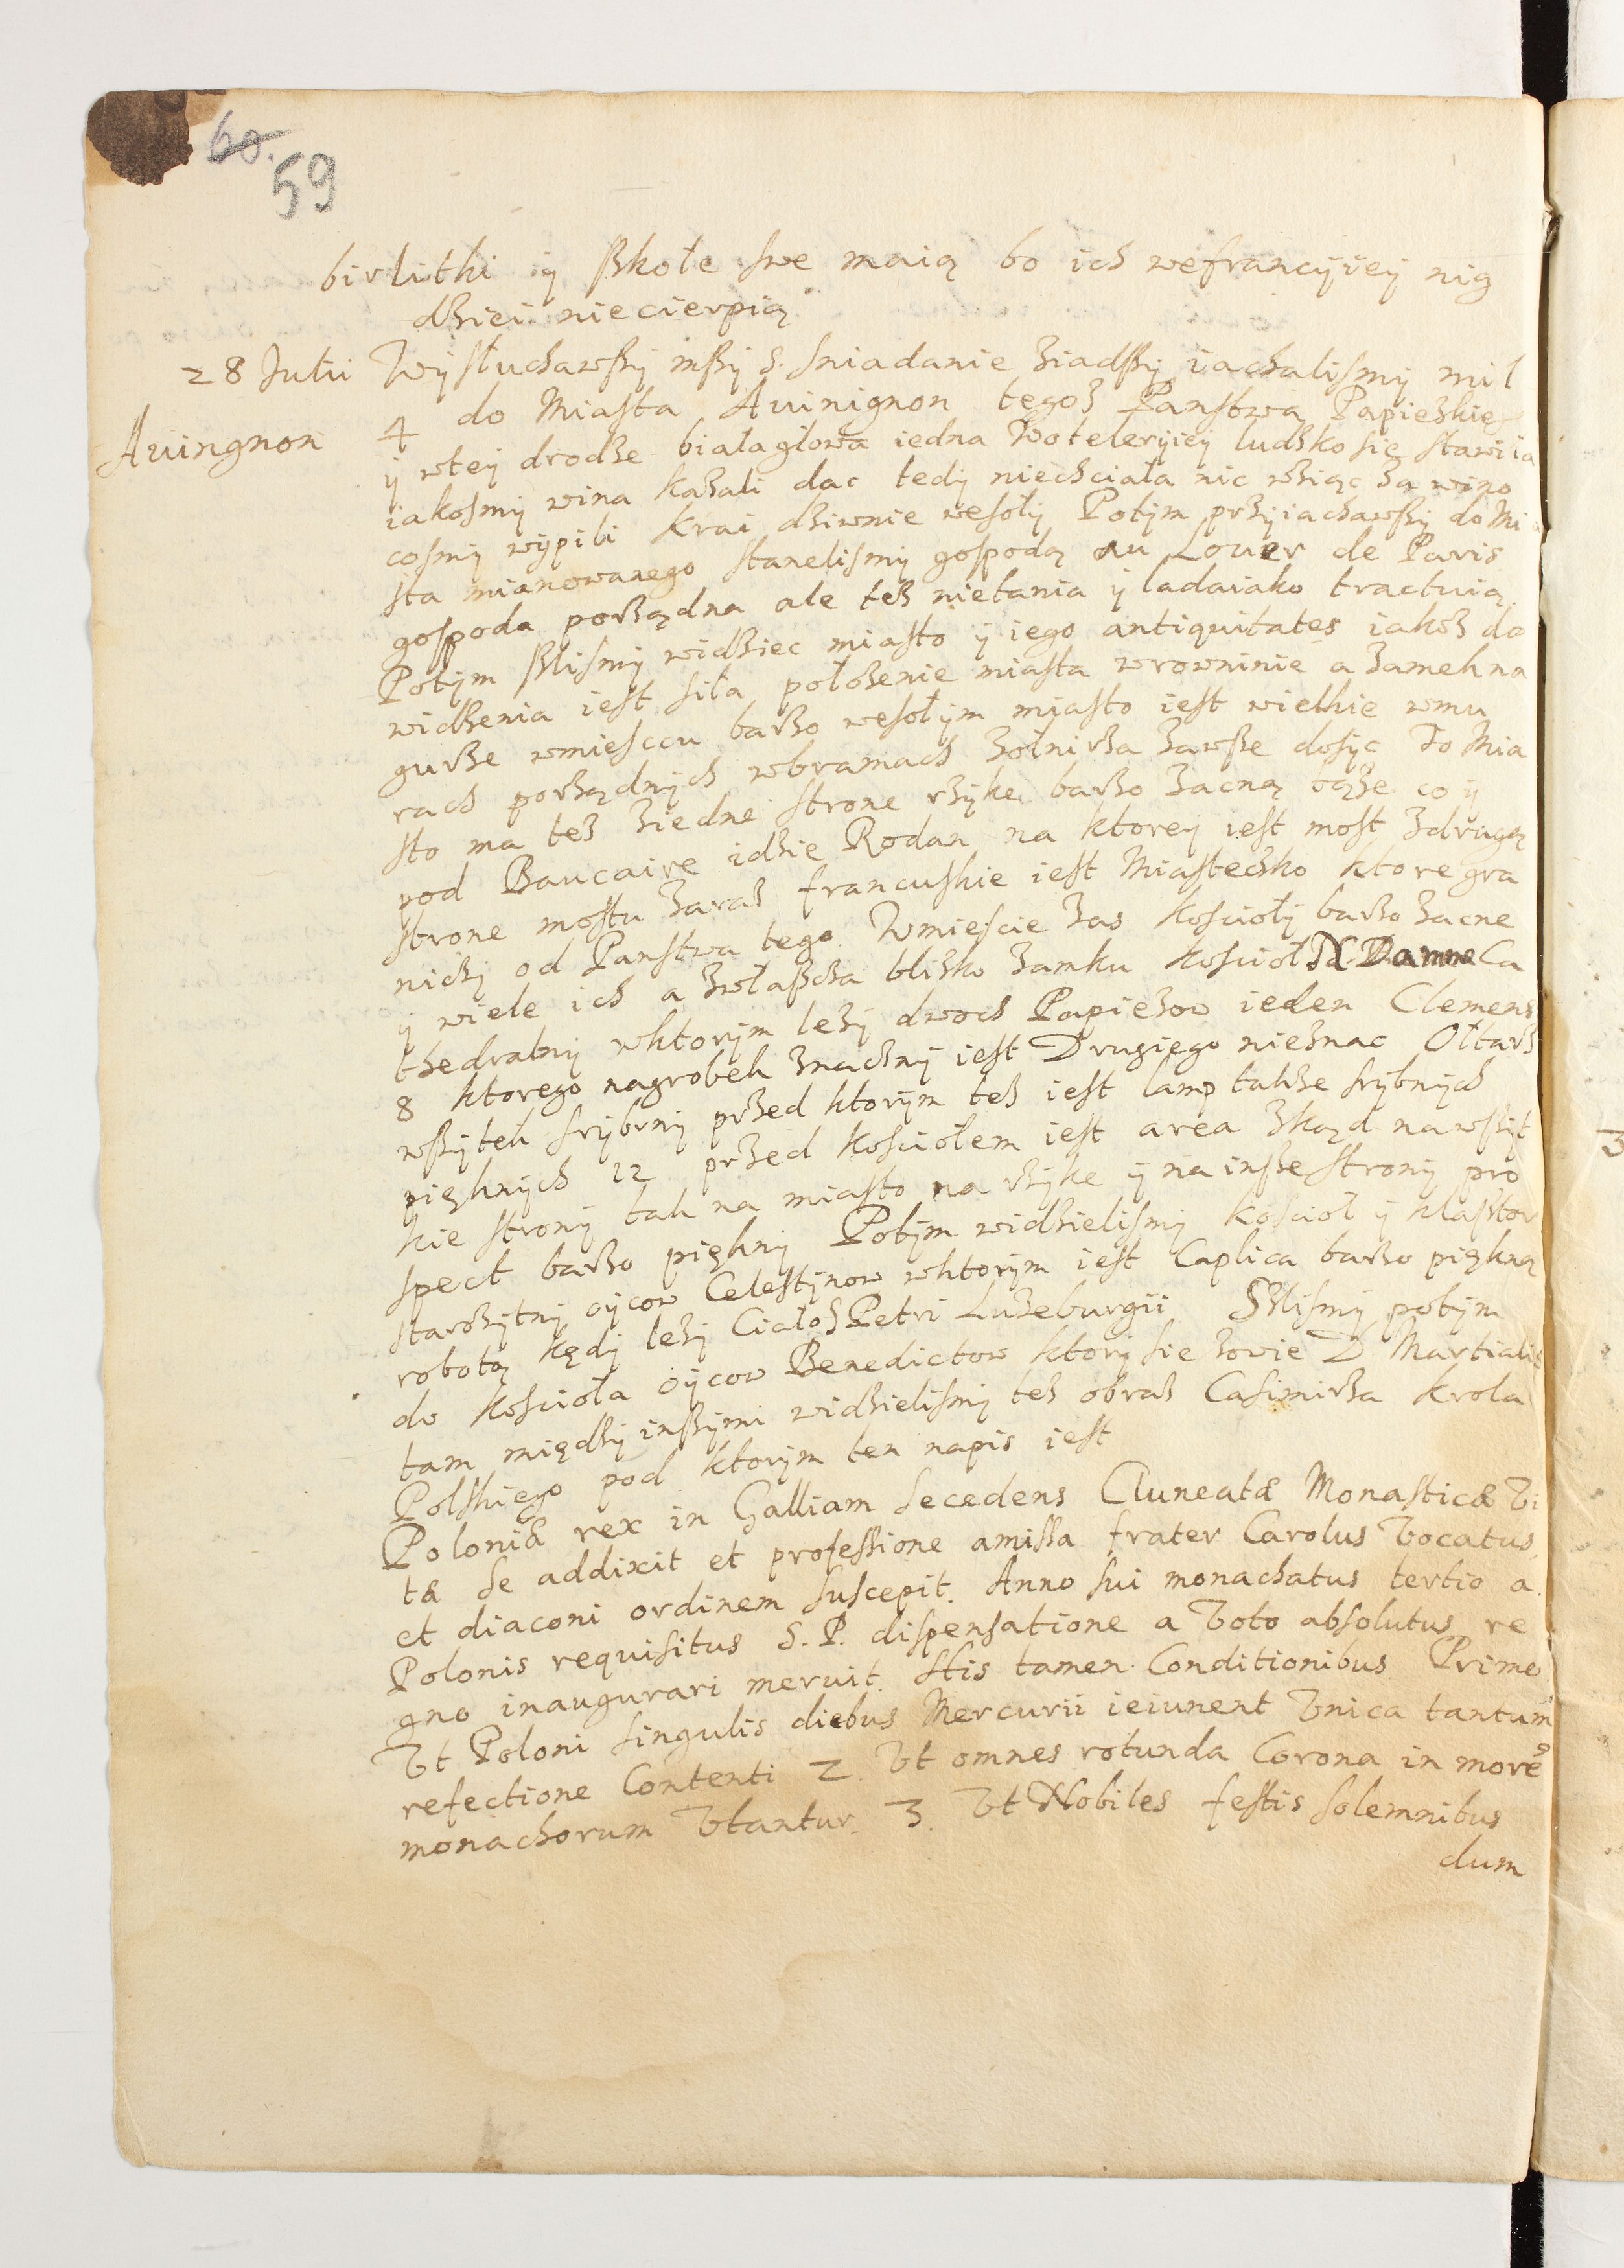 60.
59
birlithi y szkołe swe maią bo ich wefrancyiey nig
dziei niecierpią
28 Julii Wysłuchawszy mszy S. sniadanie ziadszy iachalismy mil
Avingnon 4 do Miasta Avinignon tegoz Panstwa Papiezkie
y wtey drodze białagłowa iedna Woteleryiey ludzko się stawiia
iakosmy wina kazali dac tedy niechciała nic wziąc za wino
cosmy wypili krai dziwnie wesoły Potym przyiachawszy do Mia
sta mianowanego stanelismy gospodą au Louer de Paris
gospoda porządna ale tez nietania y ladaiako tractuią
Potym szlismy widziec miasto y iego antiquitates iakoz do
widzenia iest siła połozenie miasta wrowninie a zamek na
gurze wmiesccu barzo wesołym miasto iest wielkie wmu
rach porządnych wbramach zołnirza zawsze dosyc To Mia
sto ma tez ziedne strone rzyke barzo zacną tąze co y
pod Baucaire idzie Rodan na ktorey iest most zdrugą
strone mostu zaraz francuskie iest Miasteczko ktore gra
niczy od Panstwa tego. Wmiescie zas koscioły barzo zacne
y wiele ich a zwłaszcza blizko zamku kosciół N. Damme Ca
thedralny wktorym lezy dwoch Papiezow ieden Clemens
8 ktorego nagrobek znaczny iest Drugiego nieznac Ołtarz
wszytek srybrny przed ktorym tez iest lamp takze srybnych
pięknych 12 przed kosciołem iest area zkąd nawszyt
kie strony tak na miasto na rzyke y na insze strony pro
spect barzo piękny Potym widzielismy kościoł y klasztor
starozytny oycow Celestynow wktorym iest Caplica barzo piękną
robotą kędy lezy Ciało S Petri Luzeburgii Szlismy potym
do kosciola oycow Benedictow ktory sie zowie D. Martialis
tam między inszymi widzielismy tez obraz Casimirza krola
Polskiego pod ktorym ten napis iest
Poloniæ rex in Galliam secedens Cluneatæ Monasticæ Vi
tæ se addixit et professione amissa frater Carolus Vocatus
et diaconi ordinem suscepit. Anno sui monachatus tertio a
Polonis requisitus S. P. dispensatione a Voto absolutus re
gno inaugurari meruit. stis tamen Conditionibus Primo
Vt Poloni singulis diebus Mercurii ieiunent Vnica tantum
refectione Contenti 2. Vt omnes rotunda Corona in morē
monachorum Vtantur. 3. Vt Nobiles festis solemnibus
dum